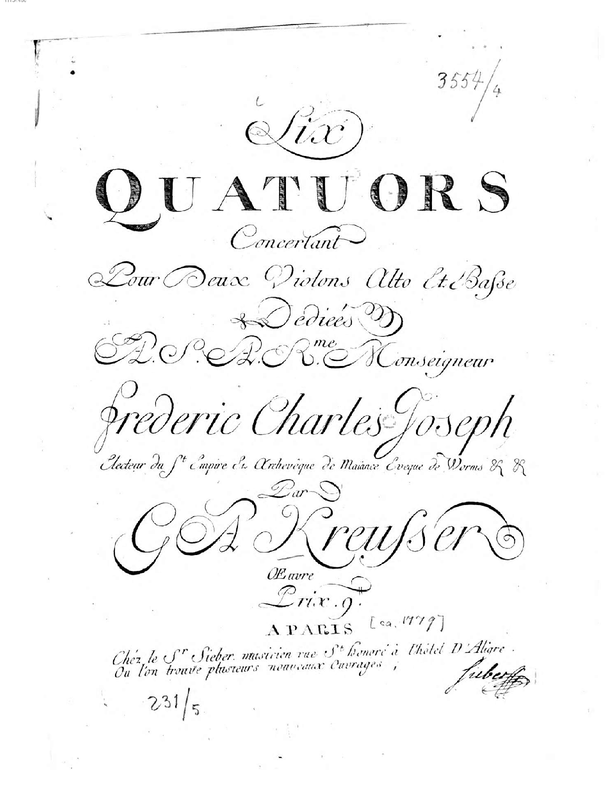 3554/4
Six
QUATUORS
Concertant
Pour Deux Violons Alto Et Basse
Dediées
A. S. A. R.me Monseigneur
frederic Charles Joseph
Electeur du St. Empire Et Archevêque de Maiance Eveque de Worms & &
Par
GA Kreusser
Œuvre
Prix. 9.tt
A PARIS [ca. 1779]
Chéz le Sr Sieber musicien rue St. honoré à l'hôtel D'Aligre.
Ou l'on trouve plusieurs nouveaux Ouvrages;
Sieber
231/5